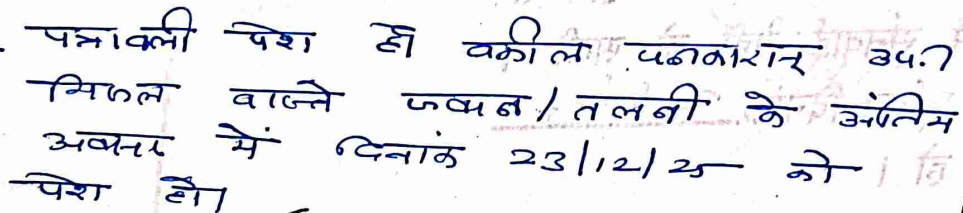 पत्रावली पेश हो वकील पक्षकारान उप.।
मिसल वास्ते जवाब / तलबी के अंतिम
अवसर में दिनांक 23/12/25 को
पेश हो।